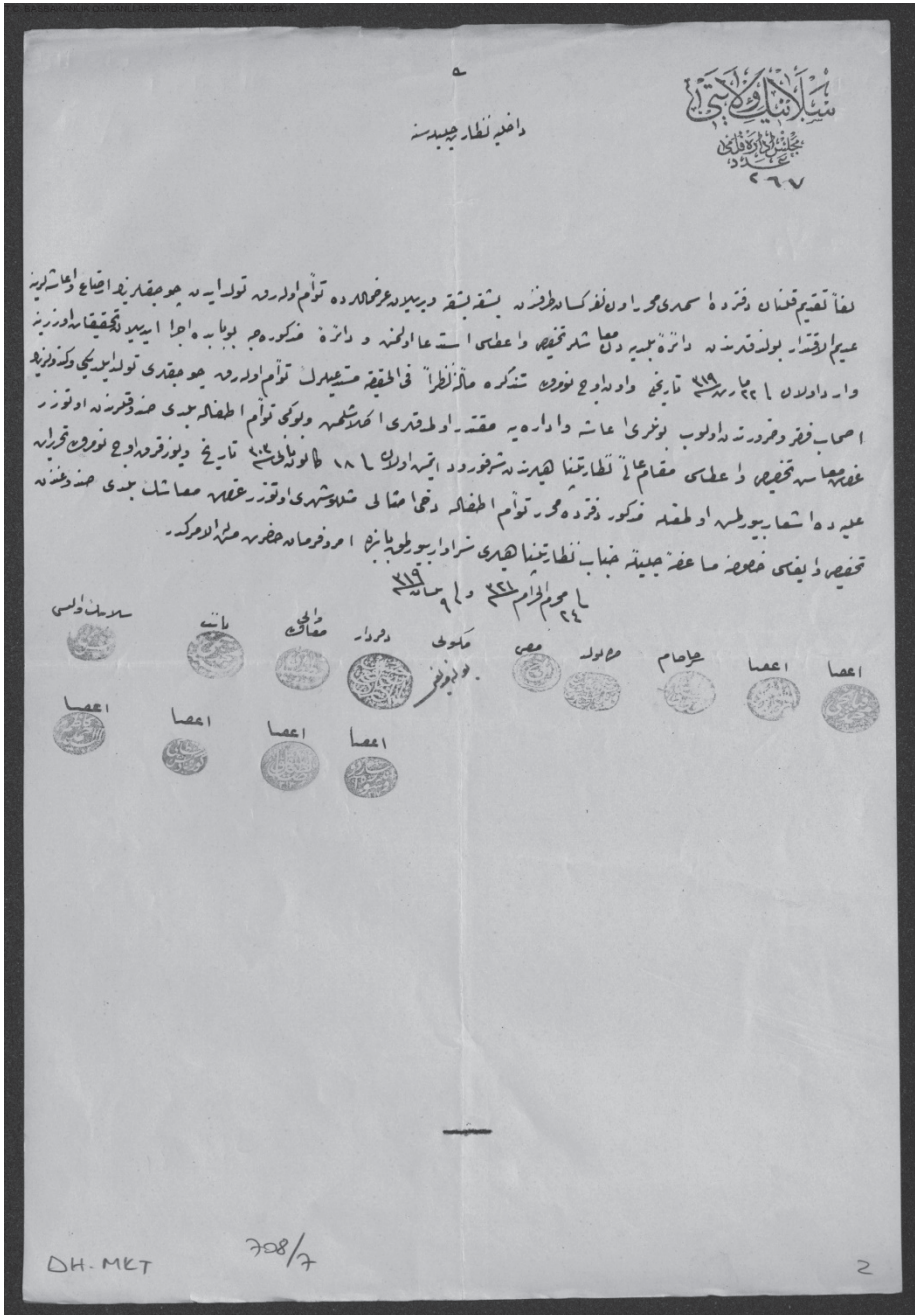 سلانيك ولايتى
مجلس اداره قلمى
عدد
٢٦٧
داخليه نظارت جليله سنه
لفاً تقديم قلنان دفترده اسملرى محرر اون نفر كسان طرفندن بشقه بشقه ويريلان عرضحاللرده توأم اوله رق تولد ايدن چوجقلرينى ارضاع واعاشه لرينه
عديم الاقتدار بولندقلرندن دائرۀ بلديه دن معاشلر تخصيص واعطاسى استدعا اولنمش ودائرۀ مذكوره جه بو بابده اجرا ايديلان تحقيقات اوزرينه
وارد اولان ٢٢ مارت ٣١٩ تاريخ واون اوچ نومرولى تذكره مآلنه نظراً فى الحقيقه مستدعيلرك توأم اوله رق چوجقلرى تولد ايلديكى وكندولرينك
اصحاب فقر وضرورتدن اولوب بونلرى اعاشه واداره يه مقتدر اولمدقلرى اكلاشلمش وبو كبى توأم اطفاله بلدى صندوقلرندن اوتوزر
غروش معاش تخصيص واعطاسى مقام عالئ نظارتپناهيلرندن شرفورود ايتمش اولان ١٨ كانون ثانى ٣٠٣ تاريخ ويوز قرق اوچ نومرولى تحريرات
عليه ده اشعار بيورلمش اولمغله مذكور دفترده محرر توأم اطفاله دخى امثالى مثللو شهرى اوتوزر غروش معاشك بلدى صندوغندن
تخصيص وايفاسى خصوصنه مساعدۀ جليلۀ جناب نظارتپناهيلرى سزاوار بيورلمق بابنده امر وفرمان حضرت من له الامركدر
٢٤ محرم الحرام ٣٢١ و ٩ نيسان ٣١٩
اعضا اعضا حاخام مفتى مكتوبى دفتردار والى معاونى نائب سلانيك واليسى
اعضا اعضا اعضا اعضا
DH.MKT 708/7 2